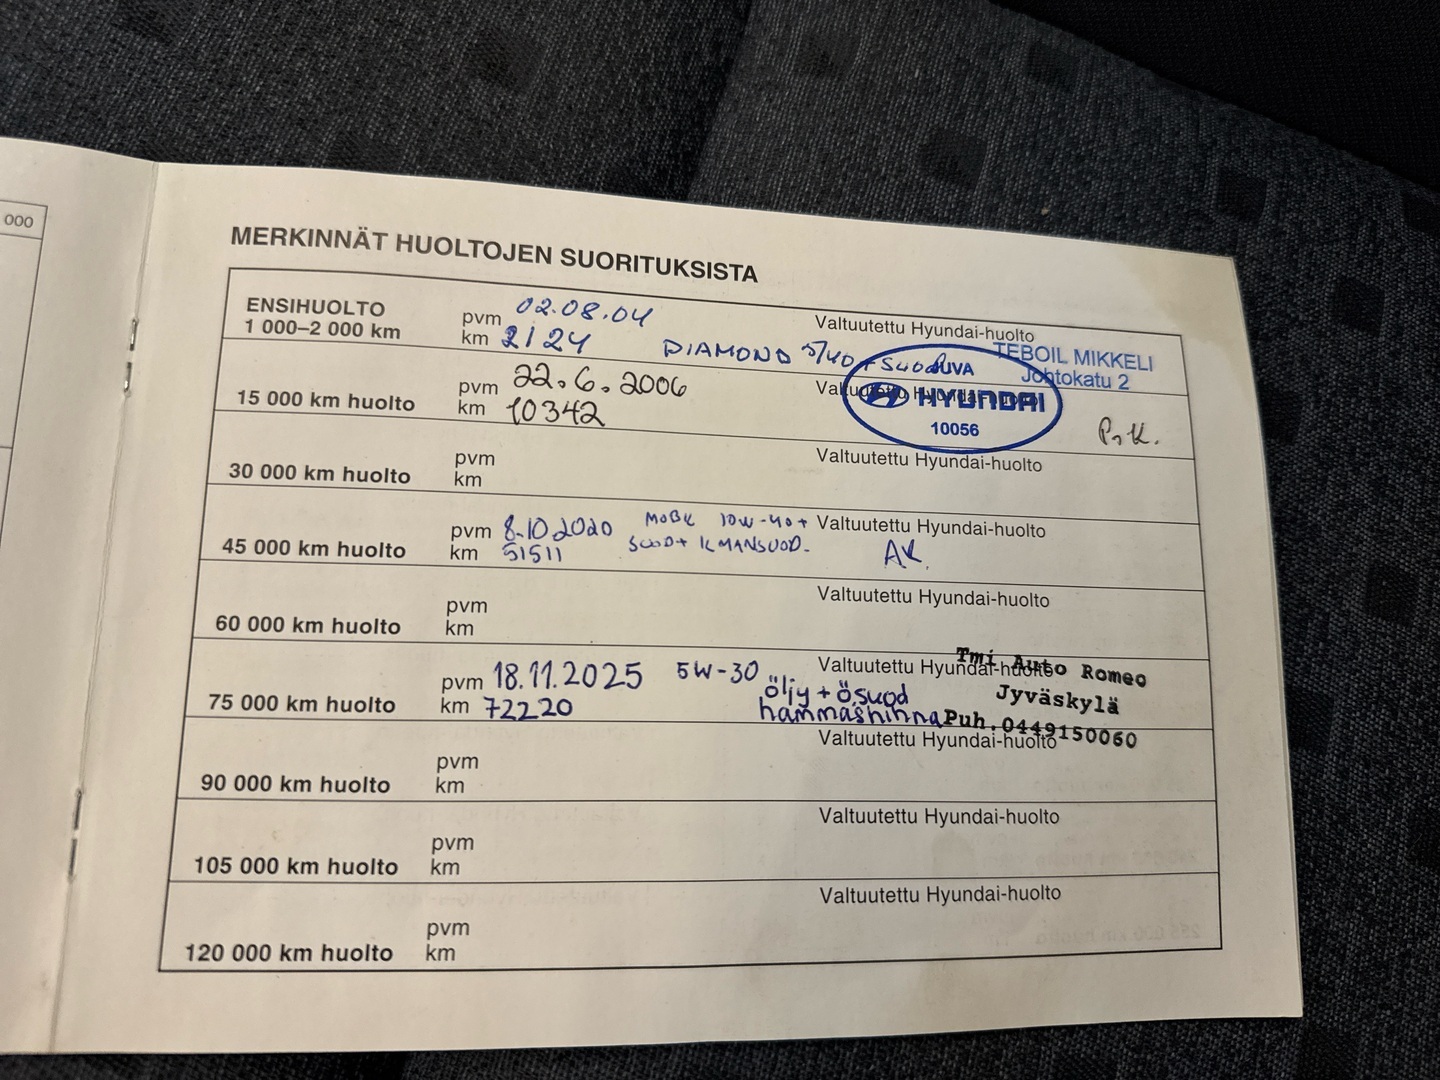 000
MERKINNÄT HUOLTOJEN SUORITUKSISTA
ENSIHUOLTO
1 000–2 000 km
pvm 02.08.04
km 2124
DIAMOND 5/40 + SUOD
Valtuutettu Hyundai-huolto
TEBOIL MIKKELI
Johtokatu 2
15 000 km huolto
pvm 22.6.2006
km 10342
Valtuutettu Hyundai-huolto
HYUNDAI
10056
30 000 km huolto
pvm
km
Valtuutettu Hyundai-huolto
45 000 km huolto
pvm 8.10.2020
km 51511
10W-40+
SUOD+ ILMANSUOD.
Valtuutettu Hyundai-huolto
AK.
60 000 km huolto
pvm
km
Valtuutettu Hyundai-huolto
75 000 km huolto
pvm 18.11.2025
km 72220
5W-30
öljy + ö.suod
hammashihna
Valtuutettu Hyundai-huolto
Tmi Auto Romeo
Jyväskylä
Puh.0449150060
90 000 km huolto
pvm
km
Valtuutettu Hyundai-huolto
105 000 km huolto
pvm
km
Valtuutettu Hyundai-huolto
120 000 km huolto
pvm
km
Valtuutettu Hyundai-huolto